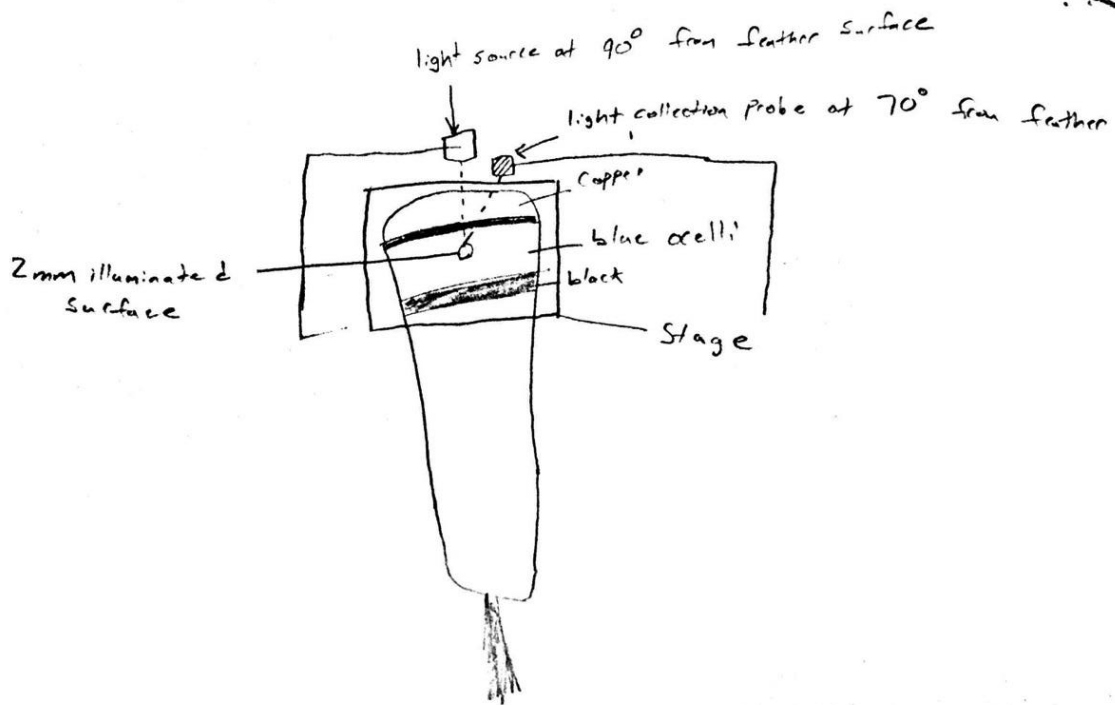 light source at 90° from feather surface
light collection probe at 70° from feather
copper
blue ocelli
2mm illuminated
surface
black
Stage